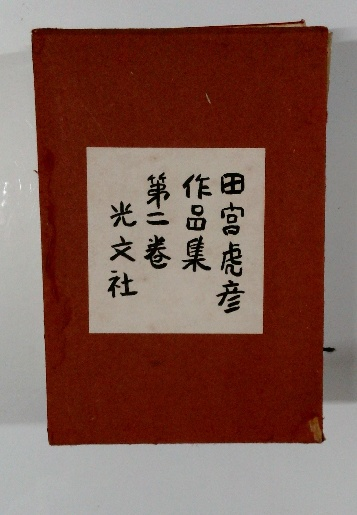 田宮虎彦
作品集
第二巻
光文社